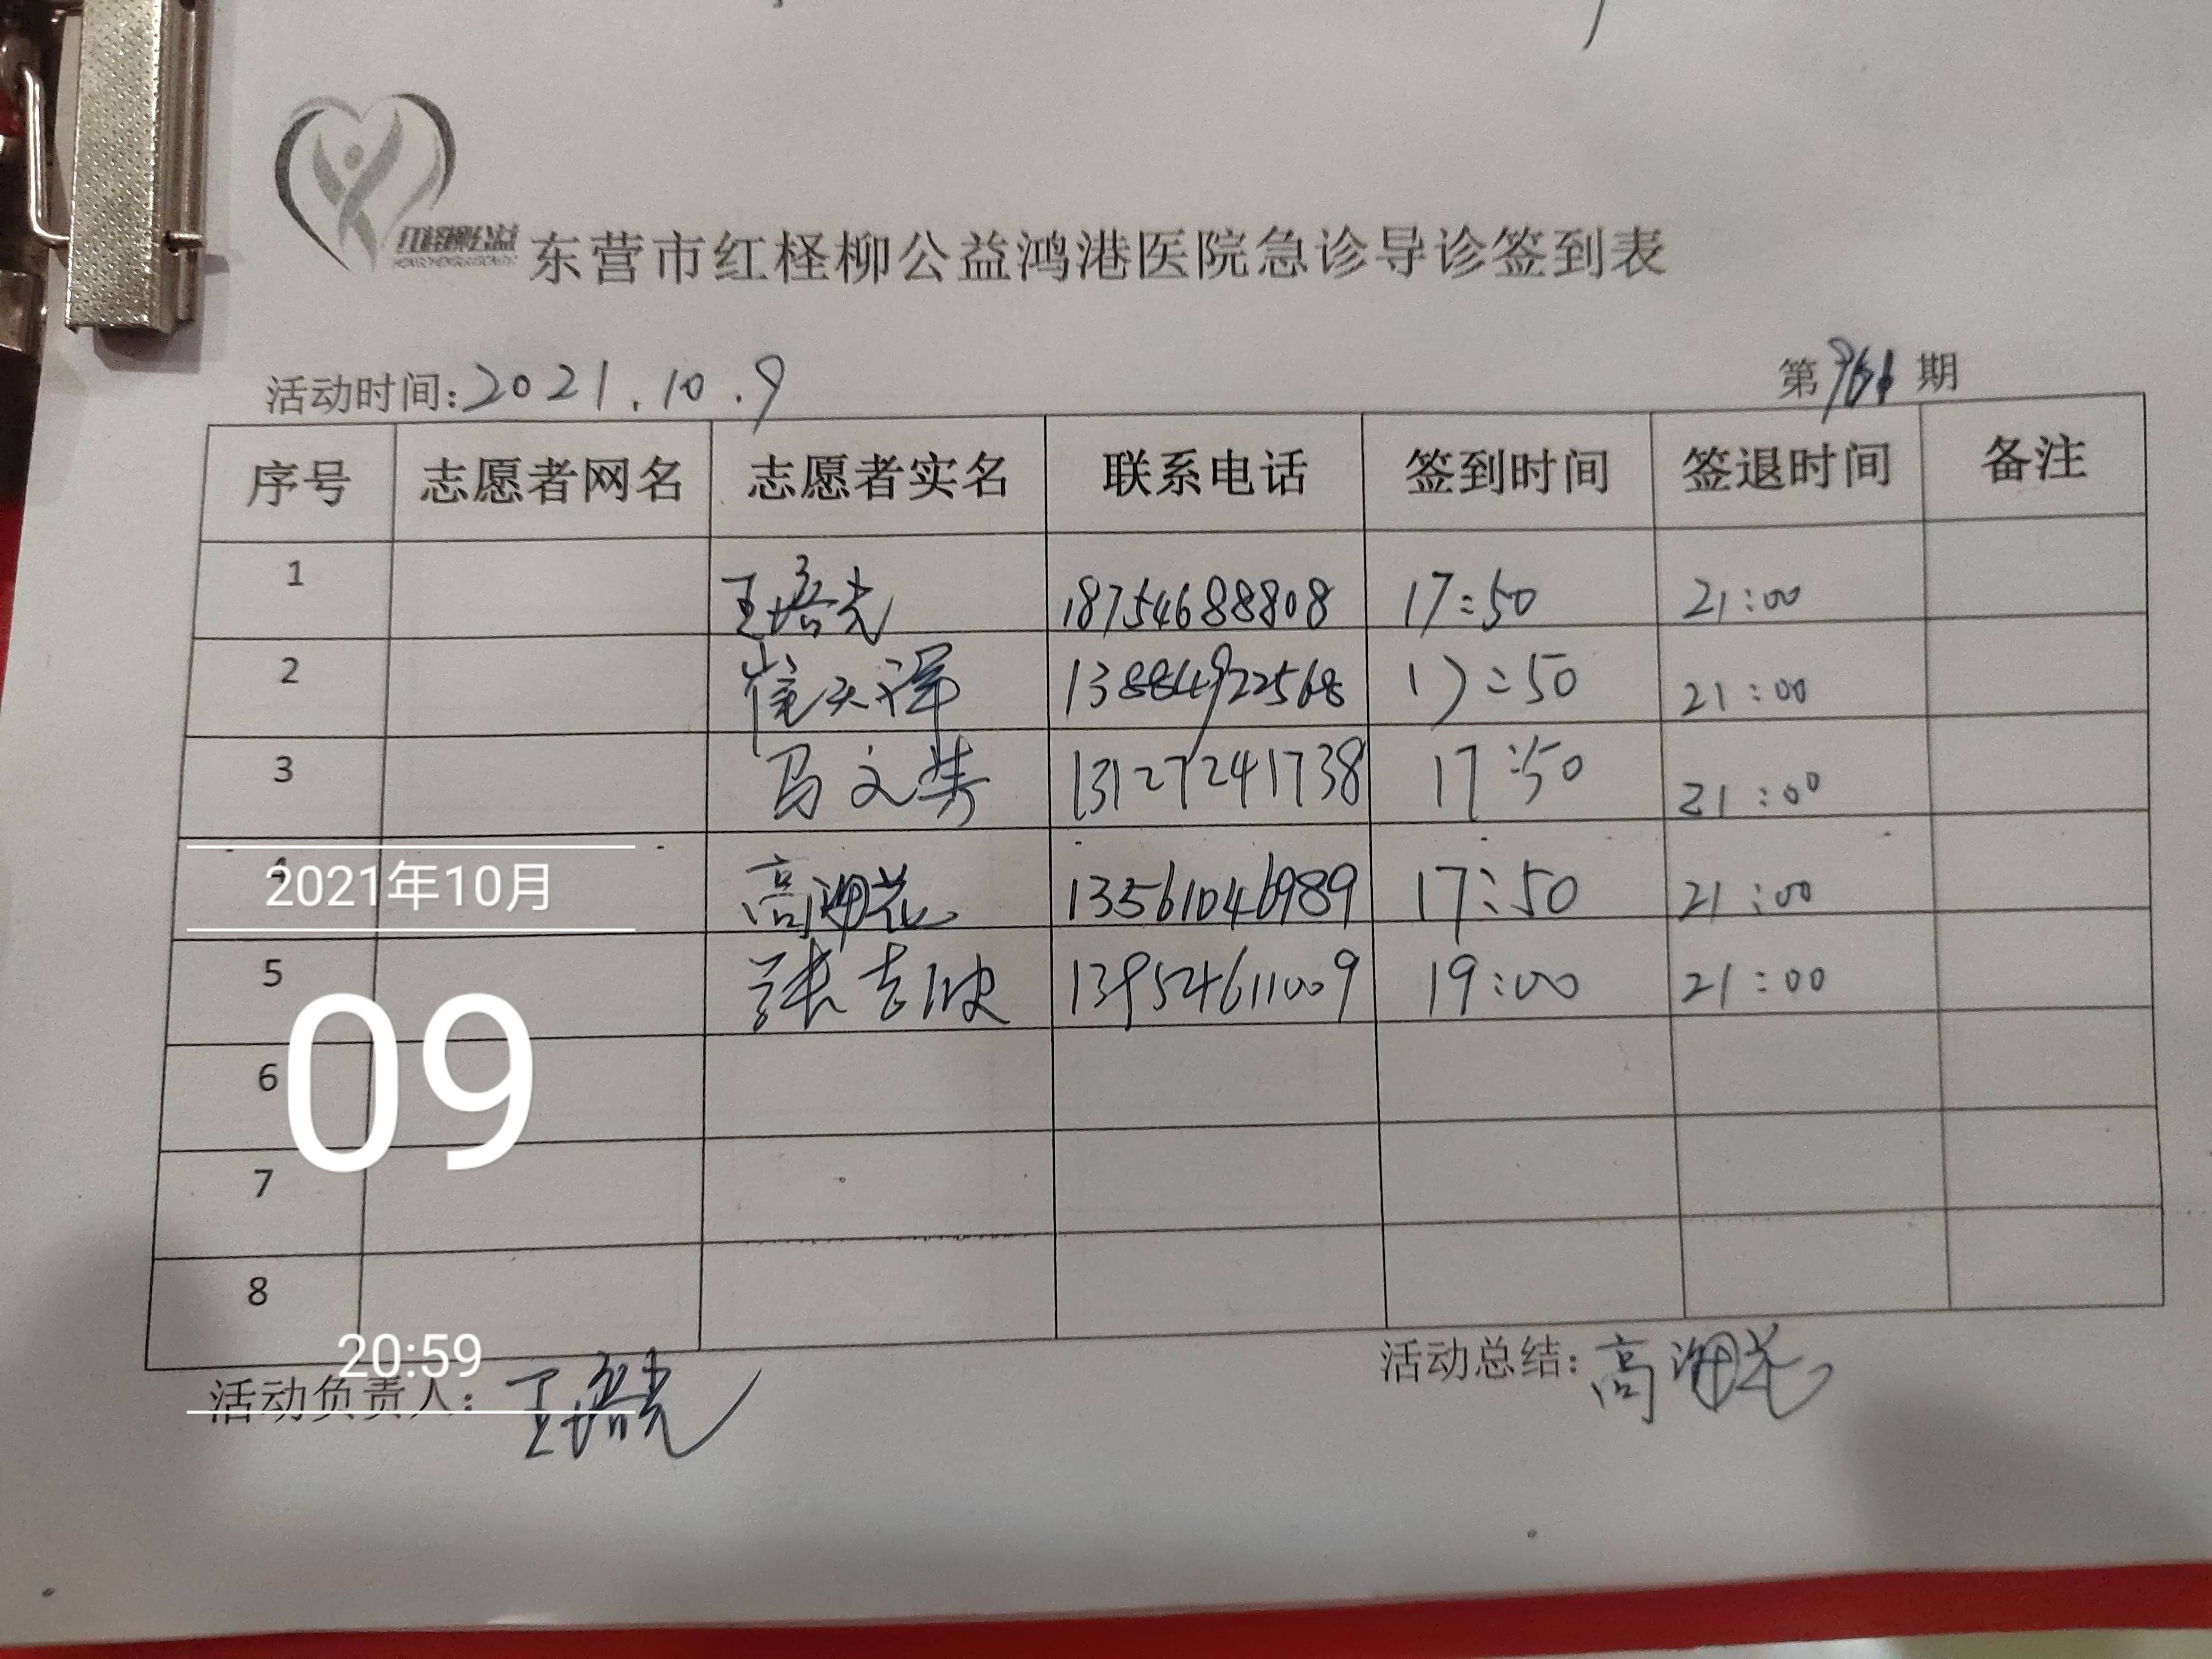 红柽柳公益
东营市红柽柳公益鸿港医院急诊导诊签到表
活动时间:2021.10.9 第 期
序号 志愿者网名 志愿者实名 联系电话 签到时间 签退时间 备注
1 王培光 18754688808 17:50 21:00
2 崔天泽 13884922568 17:50 21:00
3 马文 13127241738 17:50 21:00
4 高湘花 13561046989 17:50 21:00
5 张吉 13954611009 19:00 21:00
6
7
8
活动负责人: 王培光 活动总结: 高湘花
2021年10月
09
20:59